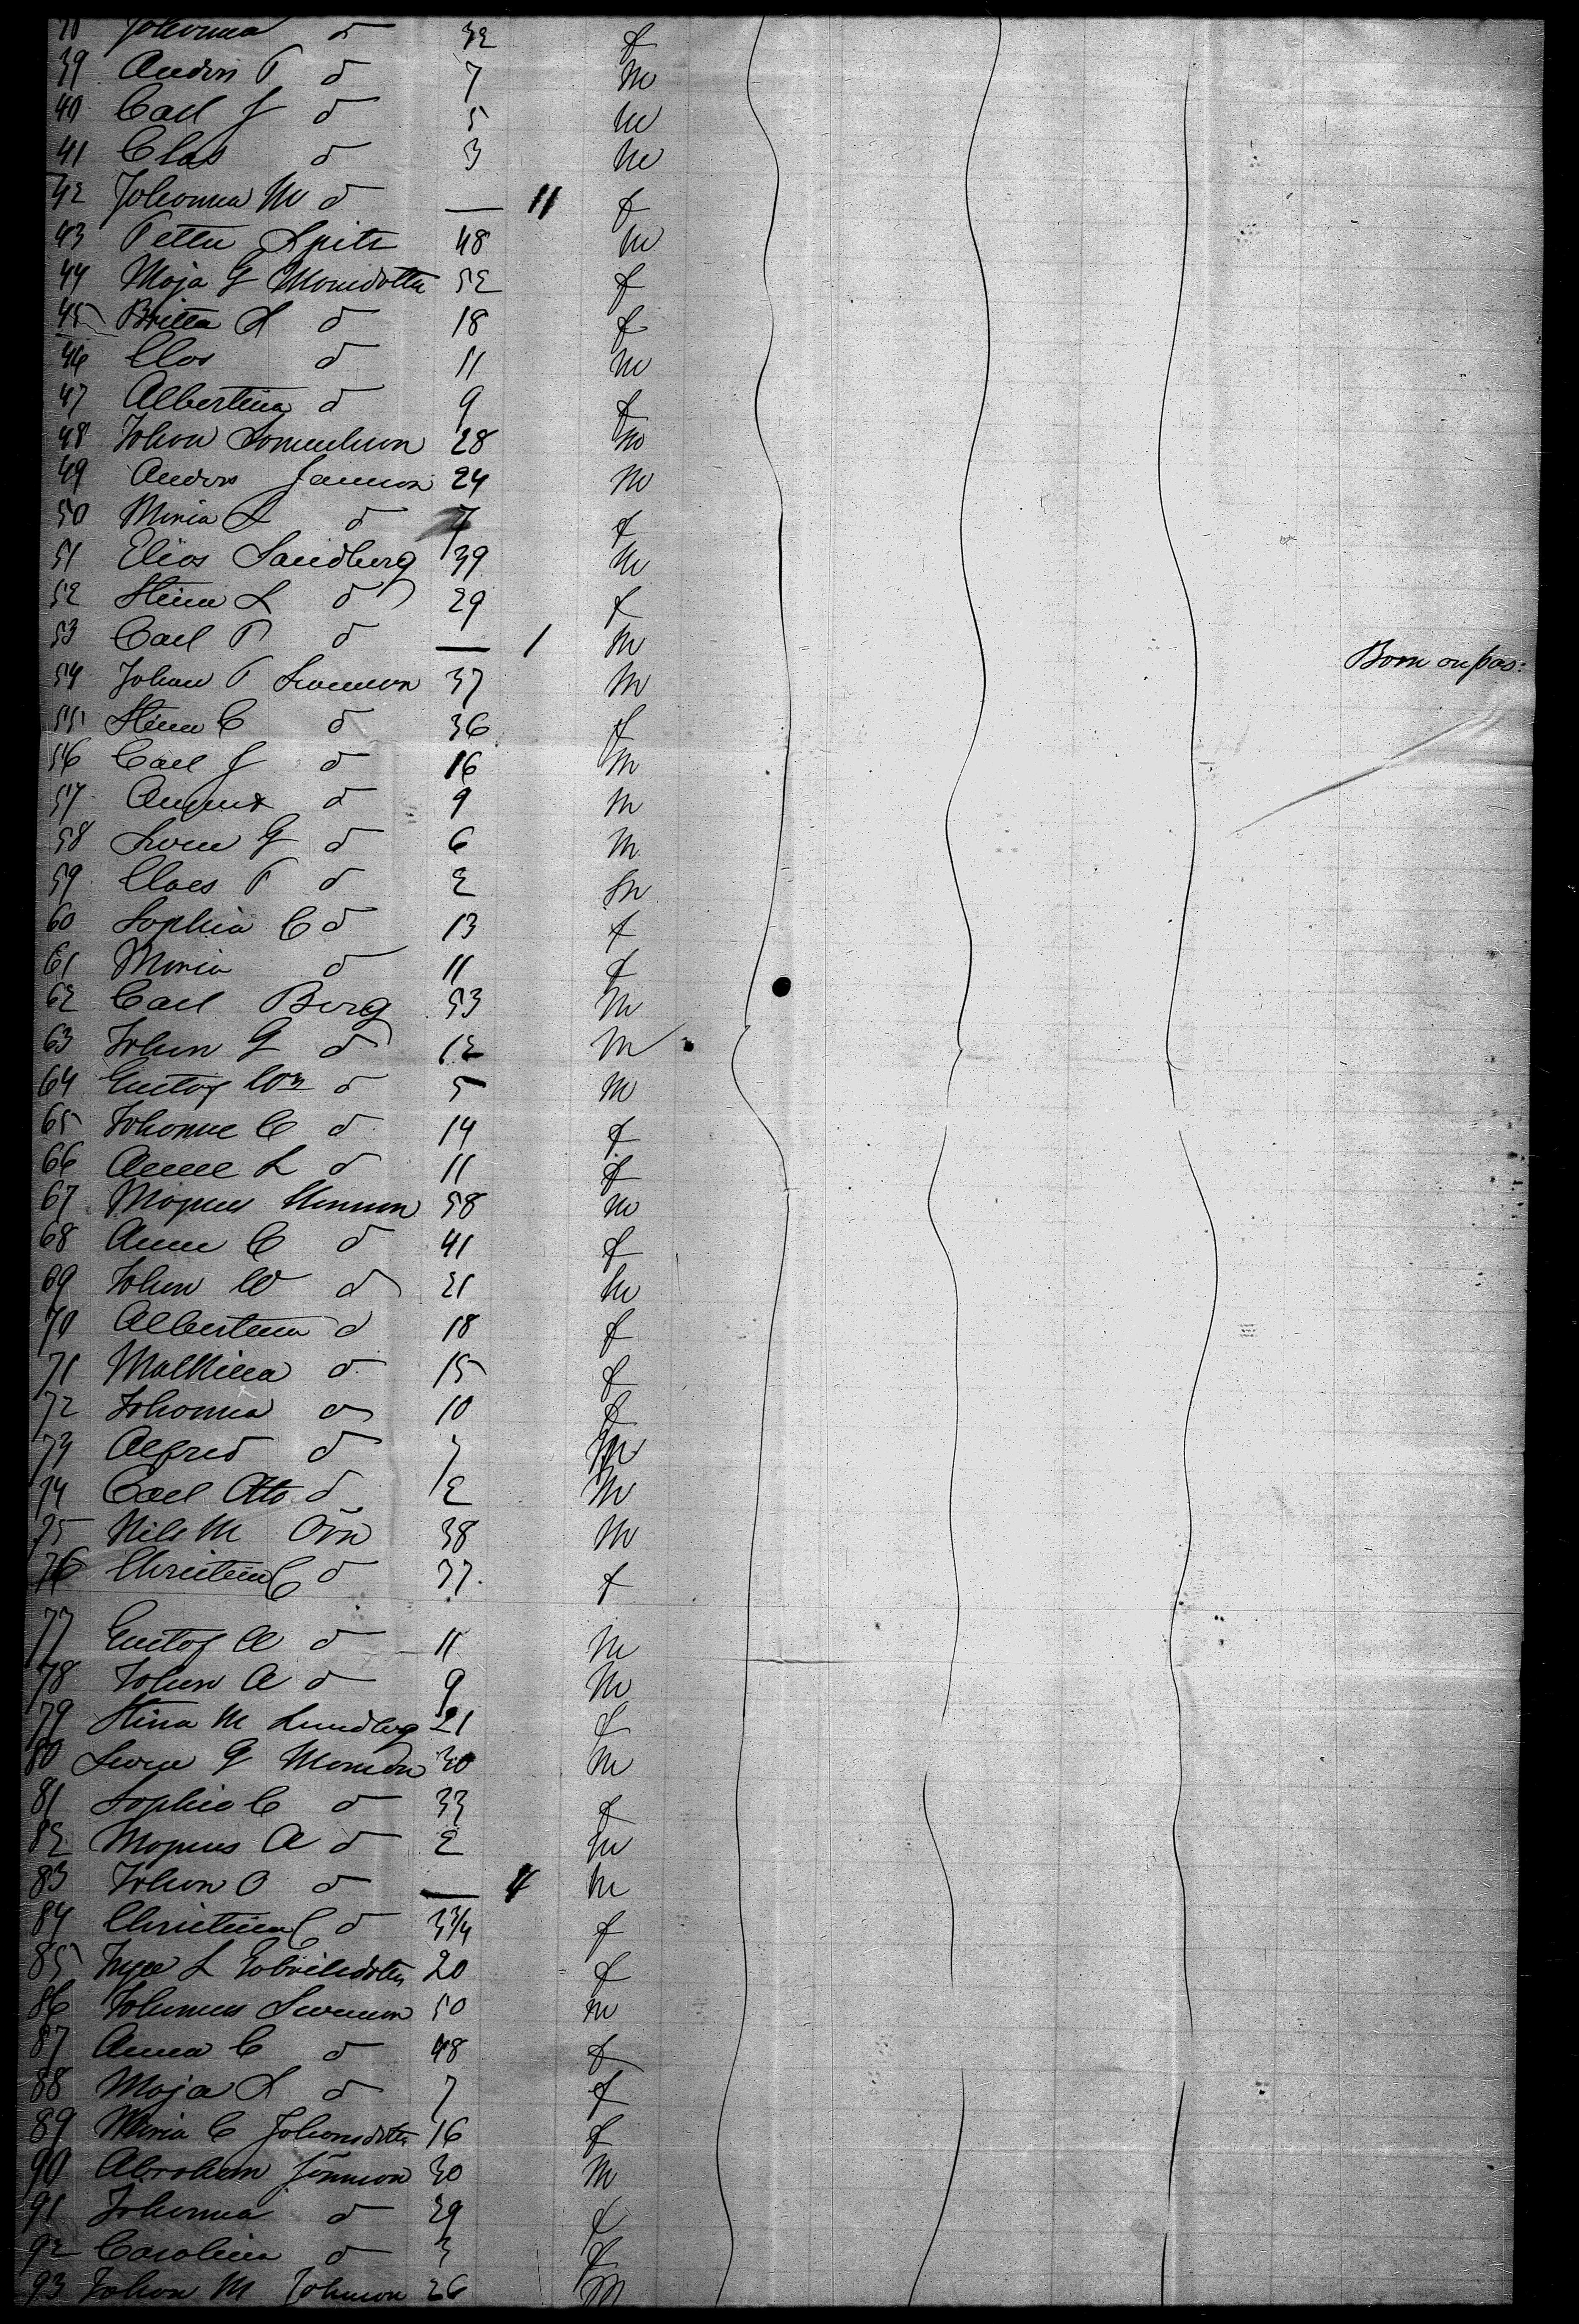 Johanna d 32 f
39 Anders P d 7 m
40 Carl J d 5 m
41 Clas d 3 m
42 Johanna M d — 11 f
43 Petter Spits 48 m
44 Maja G Monsdotter 52 f
45 Britta L d 18 f
46 Clas d 11 m
47 Albertina d 9 f
48 Johan Samuelson 28 m
49 Anders Jannson 24 m
50 Maria L d f
51 Elias Sandberg 39 m
52 Stina L d 29 f
53 Carl P d — 1 m Born on pas:
54 Johan P Swenson 37 m
55 Stina C d 36 f
56 Carl J d 16 m
57 August d 9 m
58 Swen G d 6 m
59 Claes P d 2 m
60 Sophia C d 13 f
61 Maria d 11 f
62 Carl Berg 53 m
63 Johan G d 12 m
64 Gustaf Wm d 5 m
65 Johanne C d 14 f
66 Anne L d 11 f
67 Magnus 58 m
68 Anna C d 41 f
69 Johan W d 21 m
70 Albertina d 18 f
71 Mathilda d 15 f
72 Johanna d 10 f
73 Alfred d 7 m
74 Carl Otto d 2 m
75 Nils M Örn 38 m
76 Christina C d 37 f
77 Gustaf A d 11 m
78 Johan A d 9 m
79 Stina M Lundberg 21 f
80 Swen G Monson 30 m
81 Sophia C d 33 f
82 Magnus A d 2 m
83 Johan O d — 4 m
84 Christina C d 3 3/4 f
85 Inga L Gabrielsdotter 20 f
86 Johannes Swenson 50 m
87 Anna C d 48 f
88 Maja L d 7 f
89 Maria C Johansdotter 16 f
90 Abraham Jönnson 30 m
91 Johanna d 29 f
92 Carolina d 3 f
93 Johan M Johnson 26 m